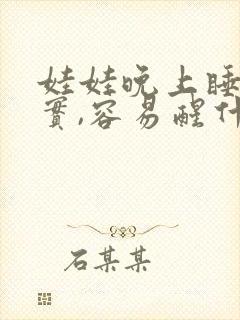 娃娃晚上睡
實,容易醒什
石某某